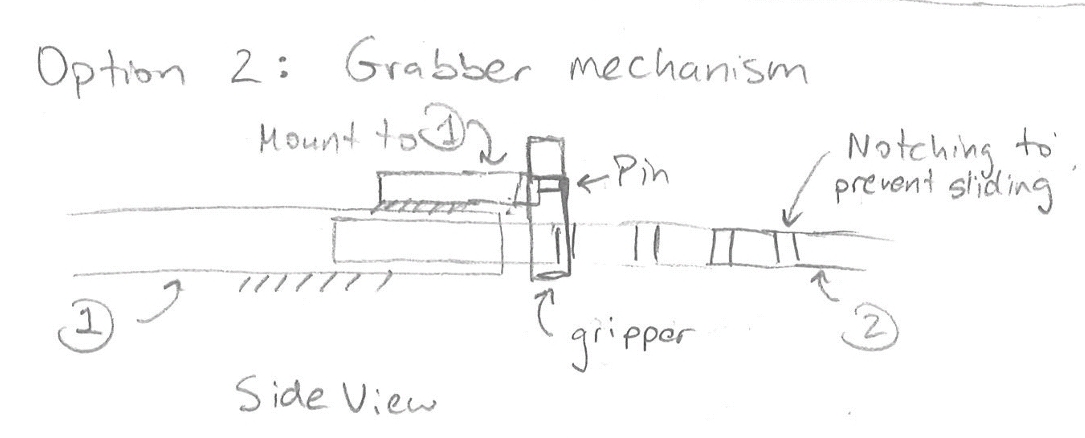 Option 2: Grabber mechanism
Mount to ①
Pin
Notching to
prevent sliding
①
②
gripper
Side View